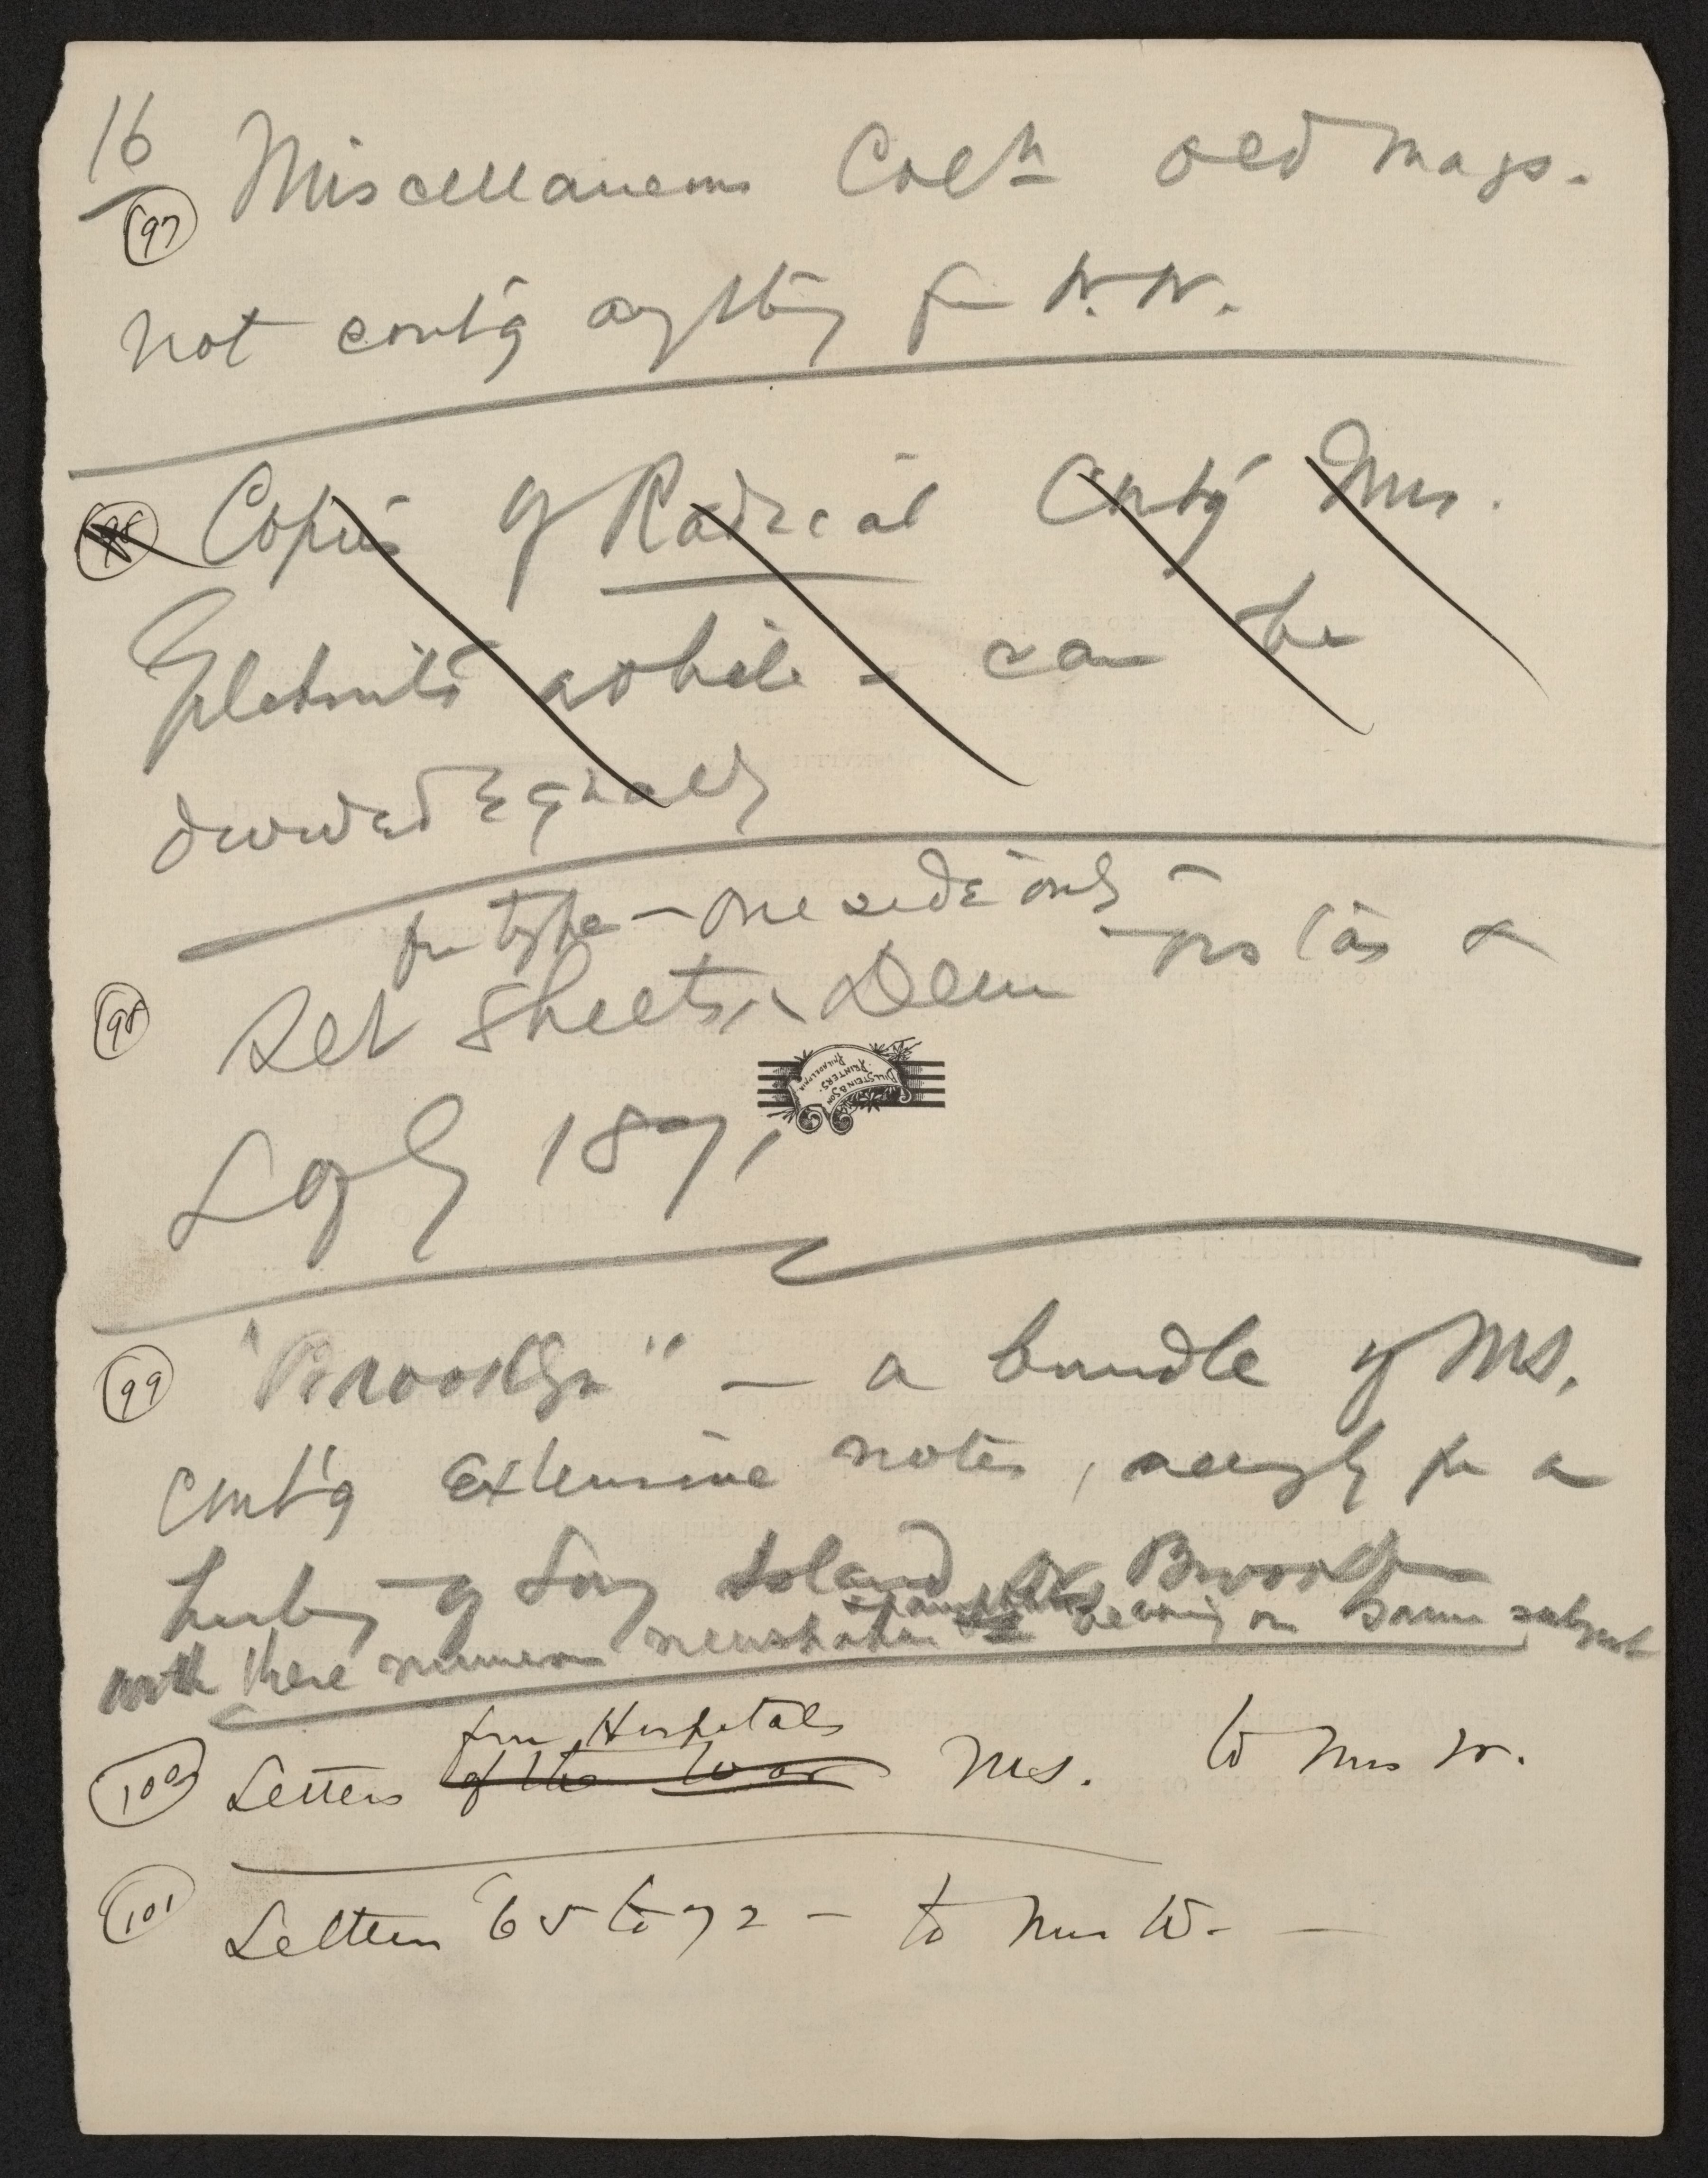 16
(97) Miscellaneous Coln old mags.
not cont'g anything fr W.W.
(98) Copies of Radical Cont'g Mrs.
Gilchrist's article - can be
divided Equally
fr type - one side only
(98) Set sheets, Dem Vistas &
L of G 1871
(99) "Brooklyn" - a bundle of MS.
cont'g extensive notes, nearly for a
history of Long Island or Brooklyn
with these numerous newspaper bearing on same subject
from Hospitals
(100) Letters of the War MS. to Mrs W.
(101) Letters '65 to 72 - to Mrs W. -
BILLSTEIN & SON
PRINTERS.
PHILADELPHIA